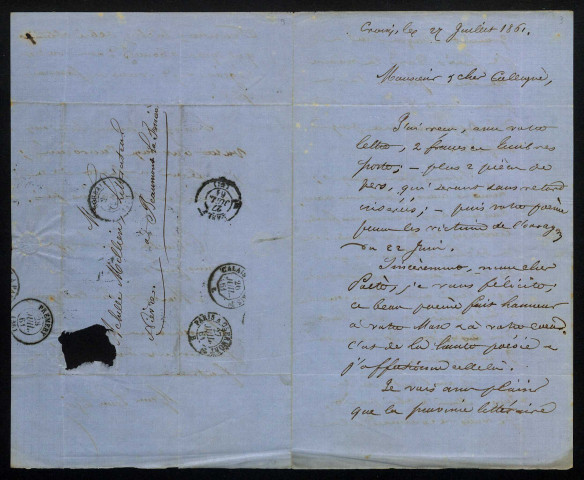 27 Juillet 1861.
Monsieur & cher Collègue,
J'ai reçu, avec votre
lettre, 2 francs en timbres
poste; — plus 2 pièces de
vers, qui seront sans retard
— puis votre poème
pour les victimes de l'ouragan
du 22 Juin.
Sincèrement, mon cher
Poète, je vous félicite,
ce beau poème fait honneur
à votre & à votre cœur.
C'est de la haute poésie &
j'affectionne celle-là.
Je vois avec plaisir
que la province littéraire
Monsieur
Achille Millien, littérateur
à Beaumont la Ferrière
Nièvre
CALAIS
PARIS
JUIL
61